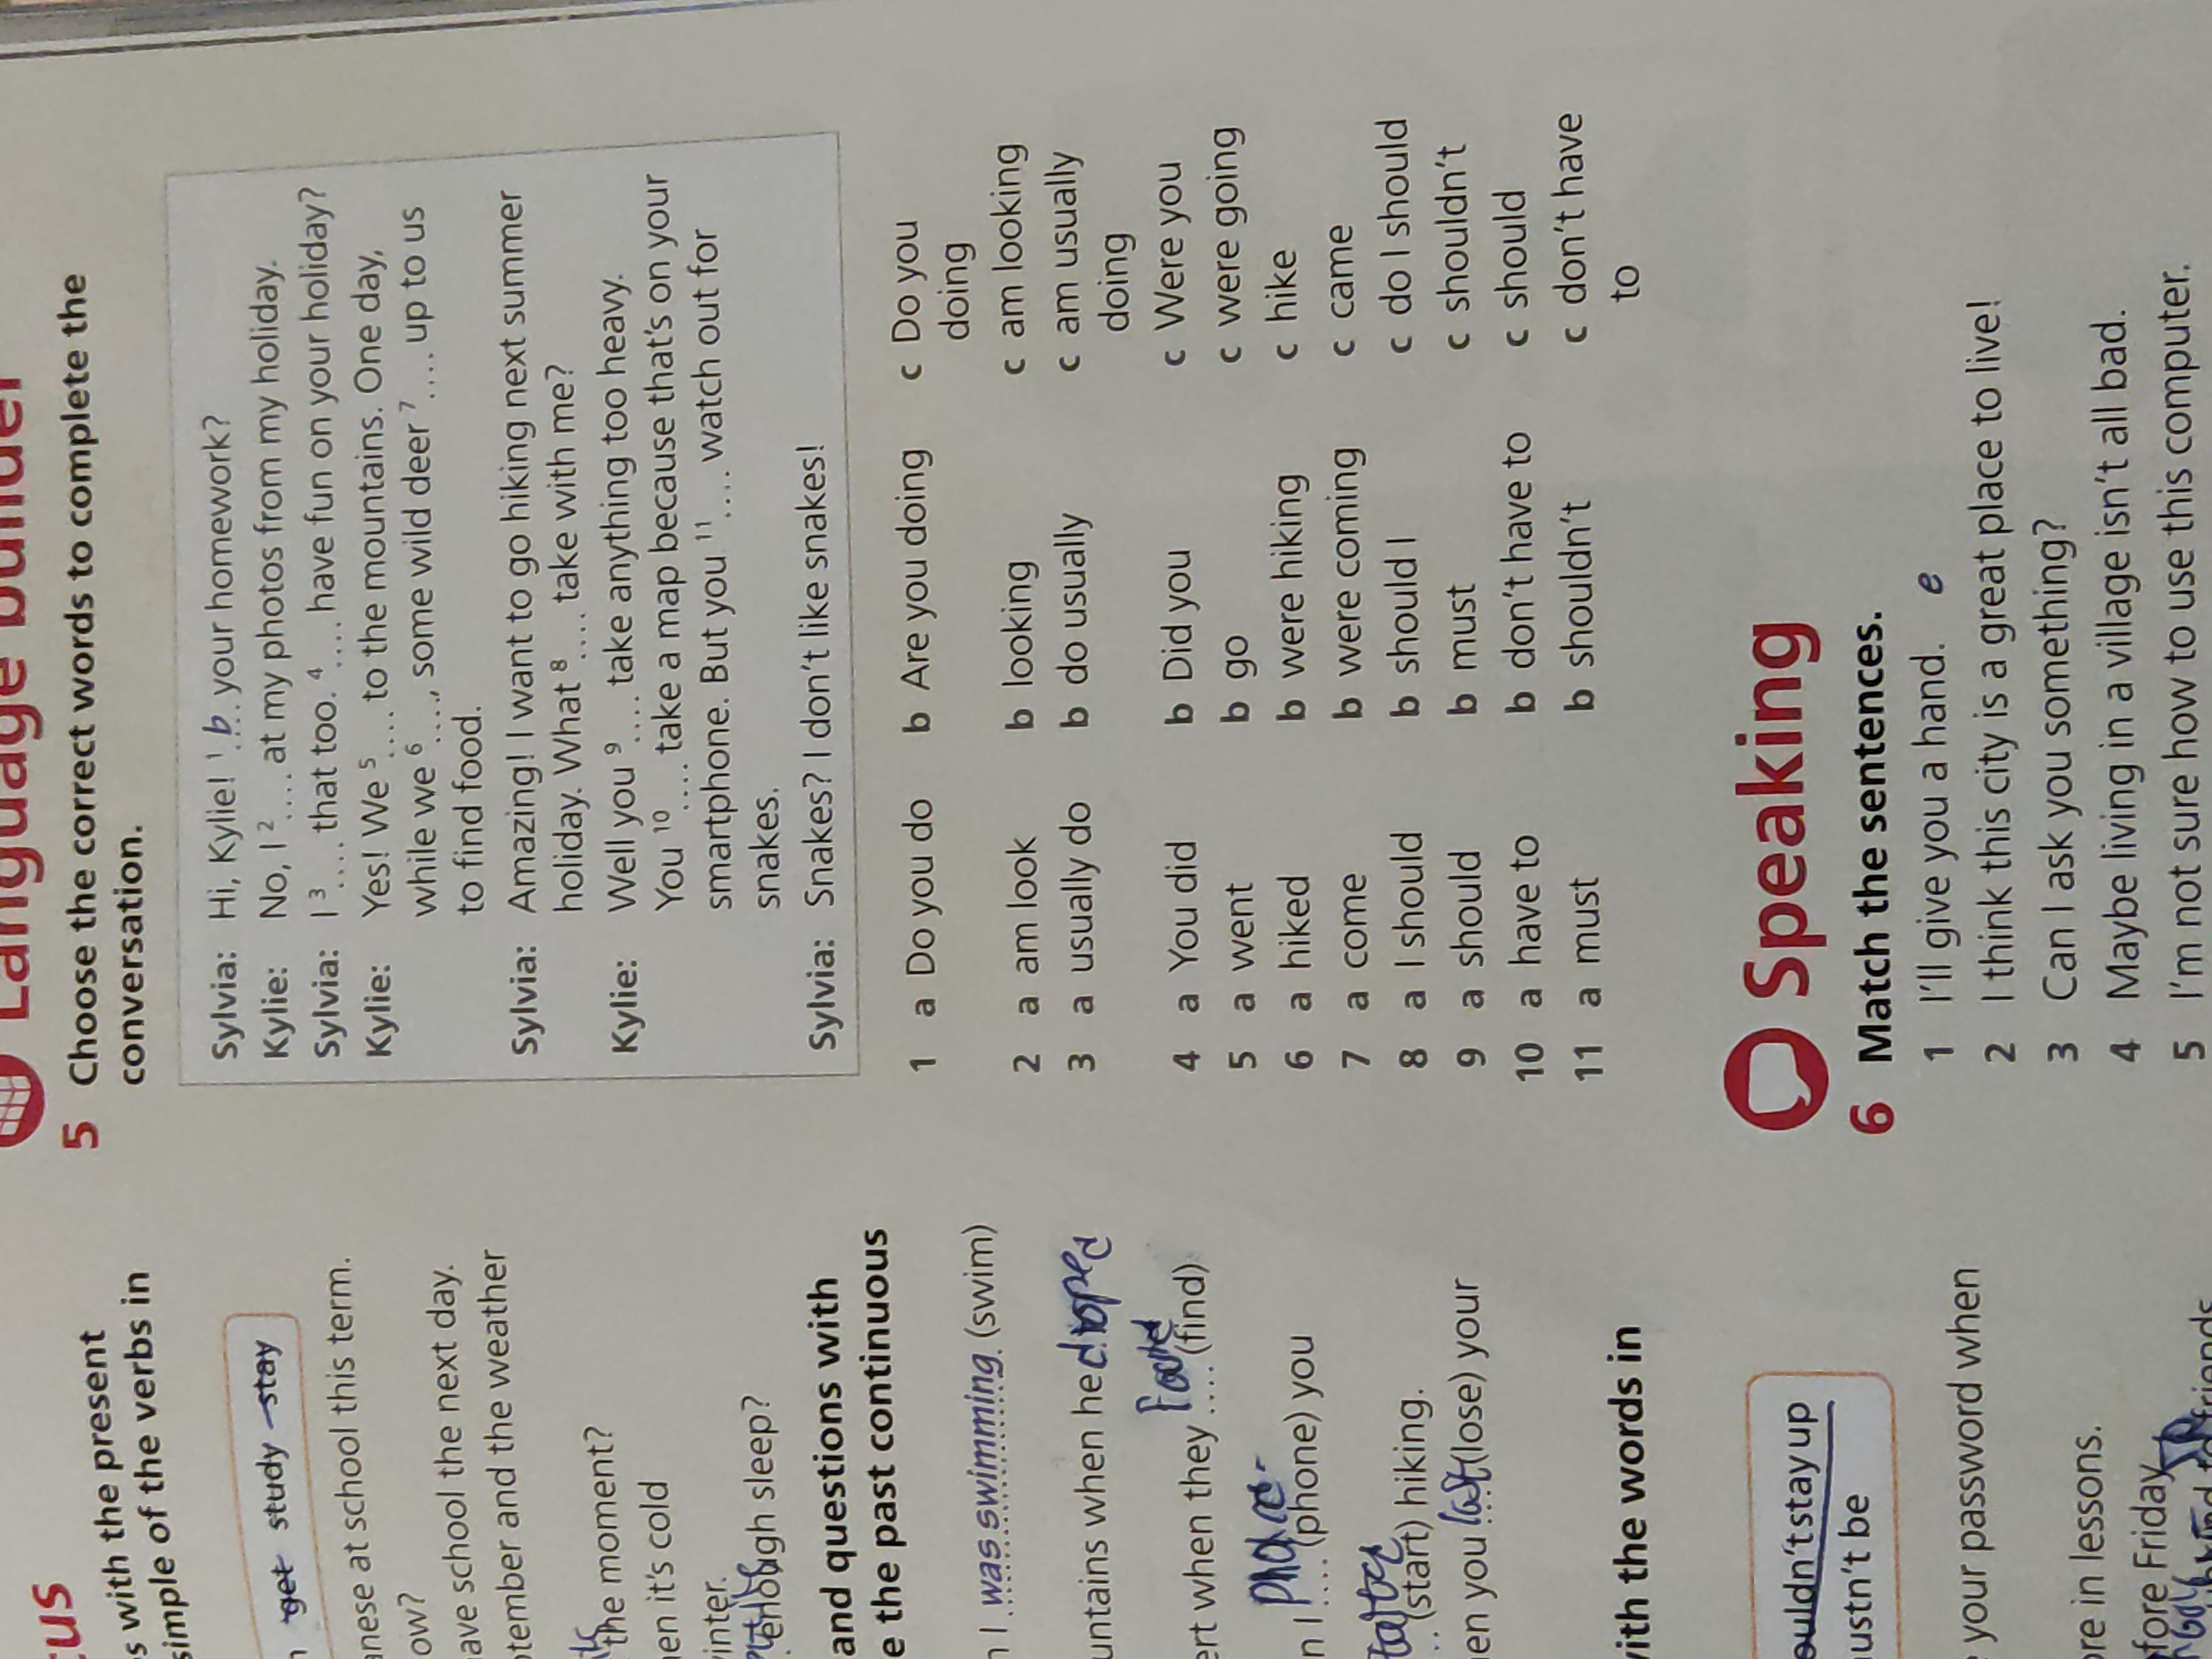 cus
s with the present
simple of the verbs in
get study stay
anese at school this term.
ow?
ave school the next day.
tember and the weather
the moment?
en it's cold
inter.
enough sleep?
and questions with
e the past continuous
n I was swimming (swim)
untains when he droped
ert when they .... found (find)
n I .... (phone) you
(start) hiking.
en you lost (lose) your
ith the words in
ouldn't stay up
ustn't be
your password when
re in lessons.
fore Friday
Language builder
5 Choose the correct words to complete the
conversation.
Sylvia: Hi, Kylie! 1 b your homework?
Kylie: No, I 2 .... at my photos from my holiday.
Sylvia: I 3 .... that too. 4 .... have fun on your holiday?
Kylie: Yes! We 5 .... to the mountains. One day,
while we 6 ...., some wild deer 7 .... up to us
to find food.
Sylvia: Amazing! I want to go hiking next summer
holiday. What 8 .... take with me?
Kylie: Well you 9 .... take anything too heavy.
You 10 .... take a map because that's on your
smartphone. But you 11 .... watch out for
snakes.
Sylvia: Snakes? I don't like snakes!
1 a Do you do b Are you doing c Do you
doing
2 a am look b looking c am looking
3 a usually do b do usually c am usually
doing
4 a You did b Did you c Were you
5 a went b go c were going
6 a hiked b were hiking c hike
7 a come b were coming c came
8 a I should b should I c do I should
9 a should b must c shouldn't
10 a have to b don't have to c should
11 a must b shouldn't c don't have
to
Speaking
6 Match the sentences.
1 I'll give you a hand. e
2 I think this city is a great place to live!
3 Can I ask you something?
4 Maybe living in a village isn't all bad.
5 I'm not sure how to use this computer.